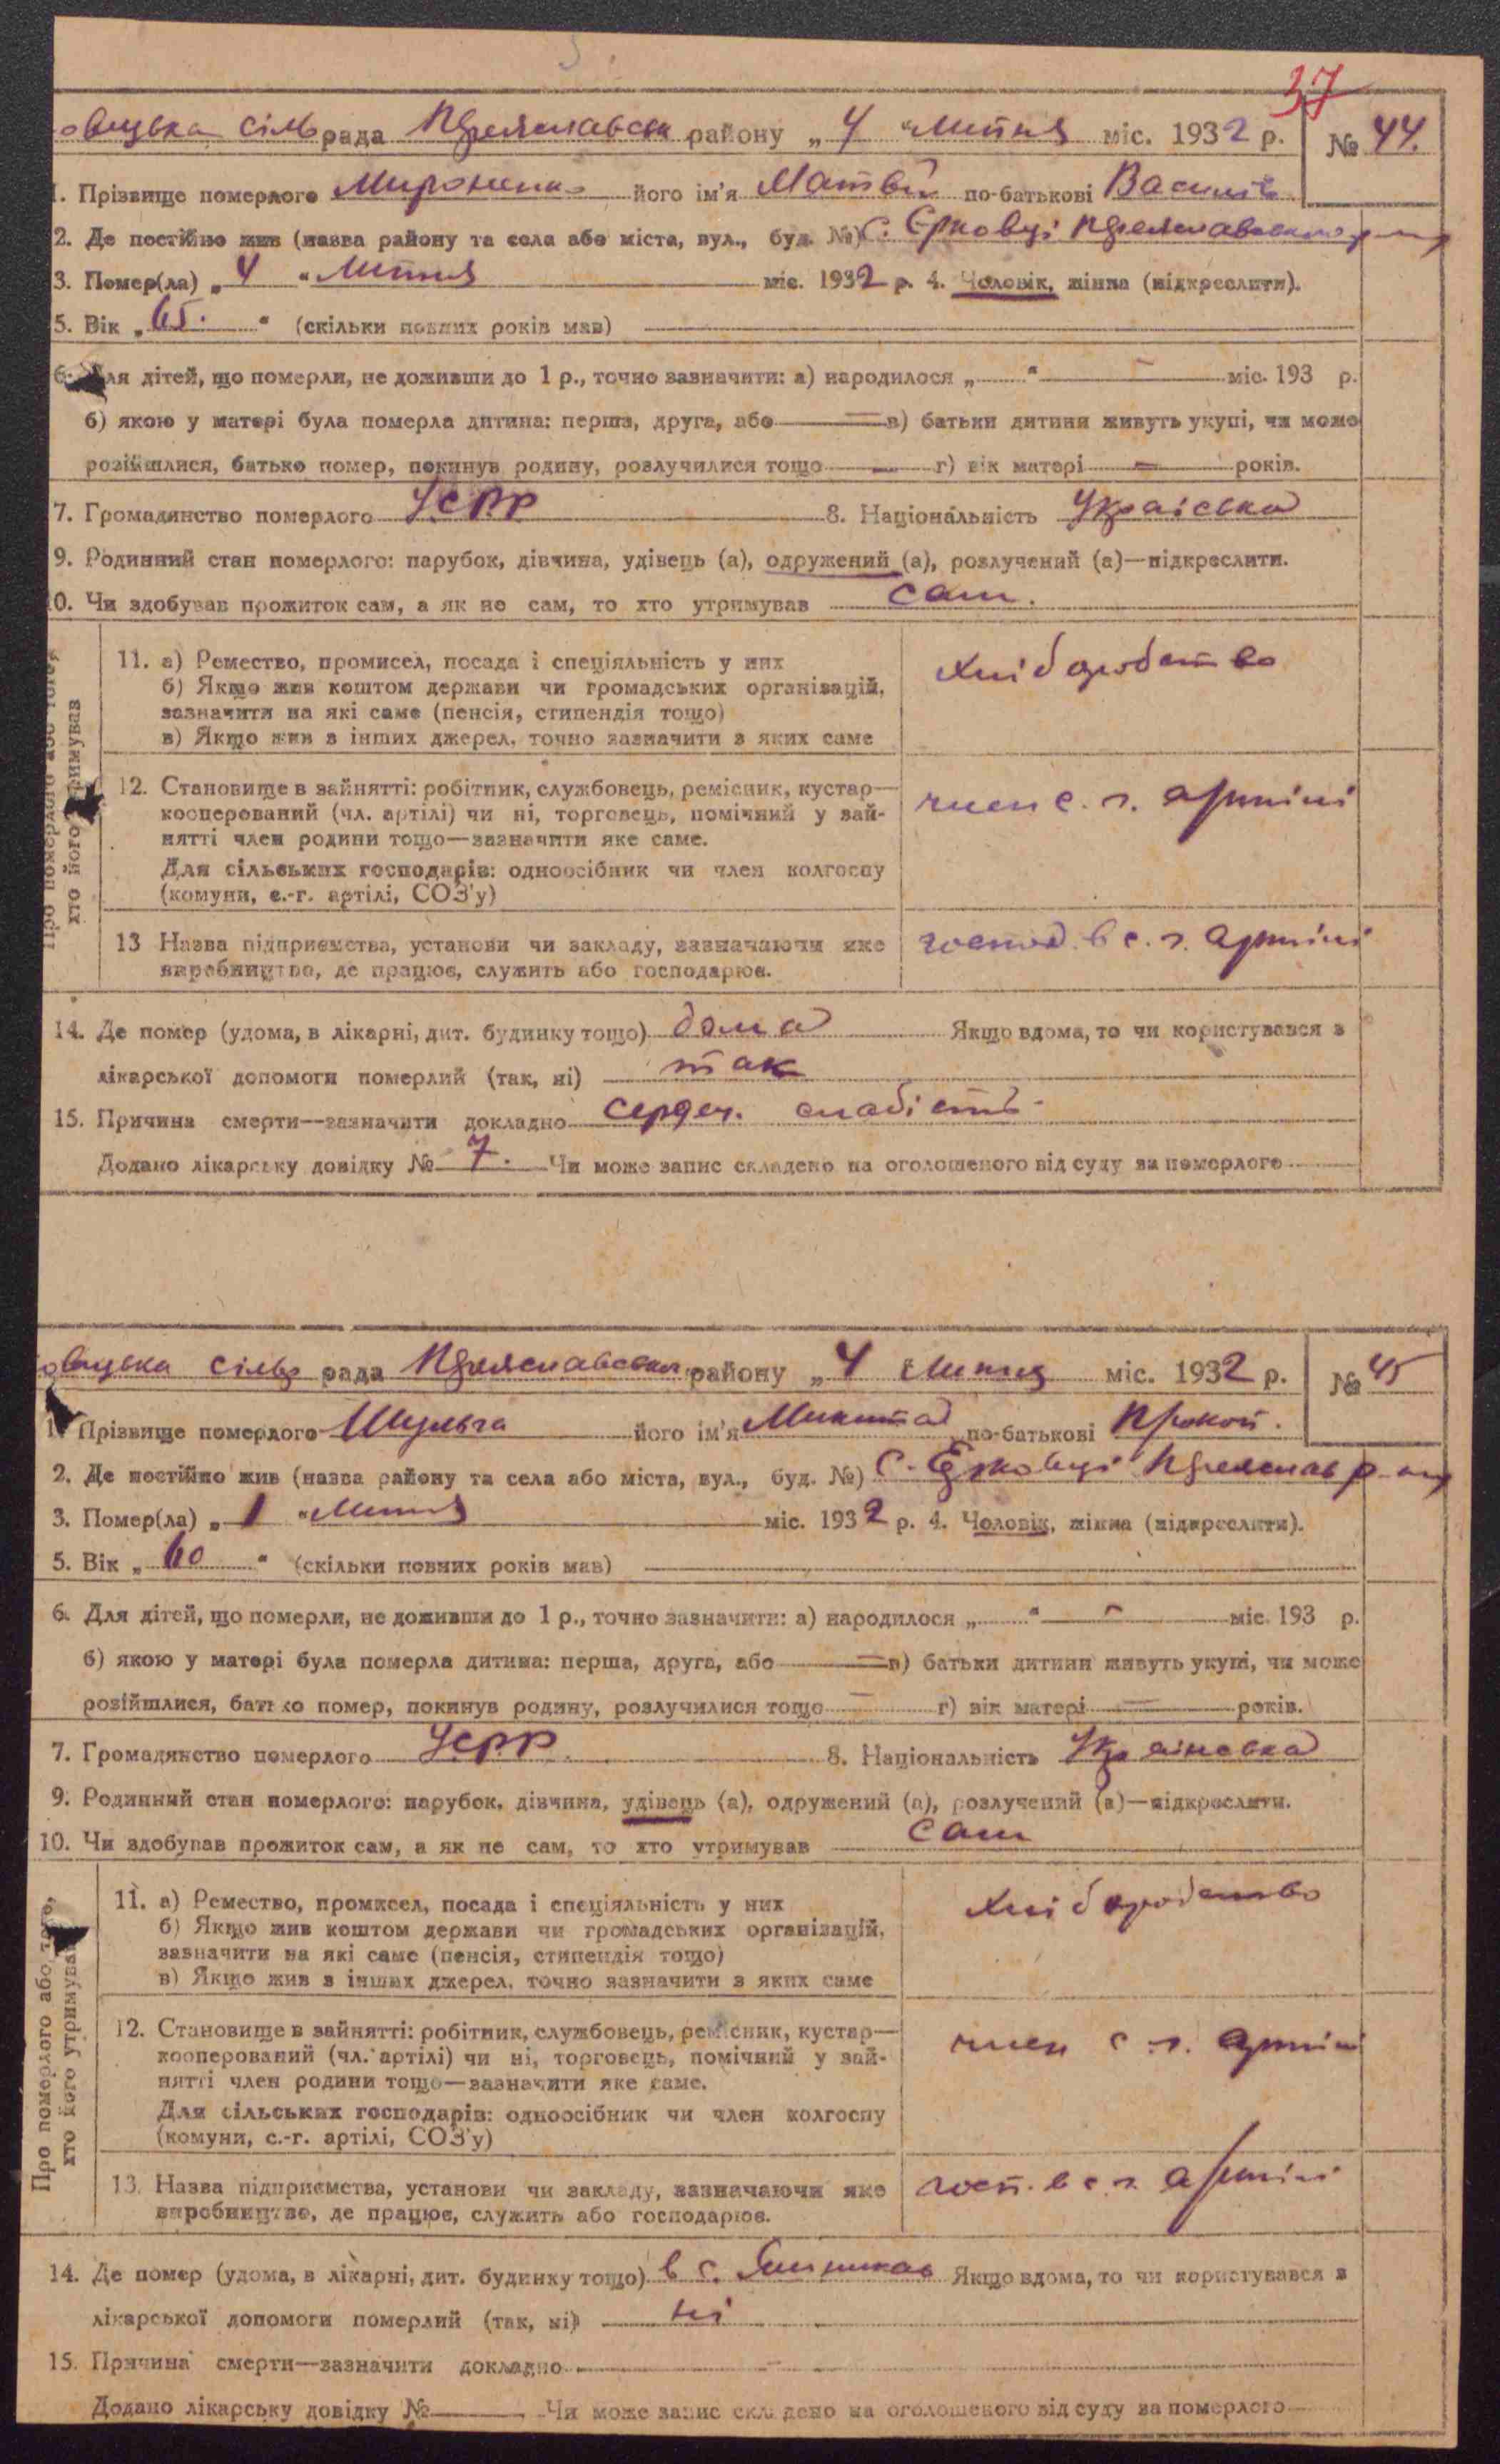 37
овецька сільрада Переяславськ району „4 “ липня міс. 1932 р. № 44.
1. Прізвище померлого Мироненко його ім'я Матвій по-батькові Василів
2. Де постійно жив (назва району та села або міста, вул., буд. №) С. Єрковці Переяславського р-ну
3. Помер(ла) „ 4 “ липня міс. 1932 р. 4. Чоловік, жінка (підкреслити).
5. Вік „ 65. “ (скільки повних років мав)
6. Для дітей, що померли, не доживши до 1 р., точно зазначити: а) народилося „ “ – міс. 193 р.
б) якою у матері була померла дитина: перша, друга, або — в) батьки дитини живуть укупі, чи може
розійшлися, батько помер, покинув родину, розлучилися тощо — г) вік матері — років.
7. Громадянство померлого УСРР 8. Національність Украіська
9. Родинний стан померлого: парубок, дівчина, удівець (а), одружений (а), розлучений (а)—підкреслити.
10. Чи здобував прожиток сам, а як не сам, то хто утримував сам.
Про померлого або того,
хто його утримував
11. а) Ремество, промисел, посада і спеціяльність у них
б) Якщо жив коштом держави чи громадських організацій,
зазначити на які саме (пенсія, стипендія тощо)
в) Якщо жив з інших джерел, точно зазначити з яких саме
хліборобство
12. Становище в зайнятті: робітник, службовець, ремісник, кустар—
кооперований (чл. артілі) чи ні, торговець, помічний у зай-
нятті член родини тощо—зазначити яке саме.
Для сільських господарів: одноосібник чи член колгоспу
(комуни, с.-г. артілі, СОЗ'у)
член с. г. артілі
13 Назва підприємства, установи чи закладу, зазначаючи яке
виробництво, де працює, служить або господарює.
господ. в с. г. артілі
14. Де помер (удома, в лікарні, дит. будинку тощо) дома Якщо вдома, то чи користувався з
лікарської допомоги померлий (так, ні) так
15. Причина смерти—зазначити докладно сердеч. слабість
Додано лікарську довідку № 7. Чи може запис складено на оголошеного від суду за померлого
овецька сільрада Переяславськ району „ 4 липня міс. 1932 р. № 45
1. Прізвище померлого Шульга його ім'я Микита по-батькові Прокоп.
2. Де постійно жив (назва району та села або міста, вул., буд. №) С. Єрковці Переяслав р-ну
3. Помер(ла) „ 1 “ липня міс. 1932 р. 4. Чоловік, жінка (підкреслити).
5. Вік „ 60 “ (скільки повних років мав)
6. Для дітей, що померли, не доживши до 1 р., точно зазначити: а) народилося „ “ – міс. 193 р.
б) якою у матері була померла дитина: перша, друга, або — в) батьки дитини живуть укупі, чи може
розійшлися, батько помер, покинув родину, розлучилися тощо — г) вік матері — років.
7. Громадянство померлого УСРР 8. Національність Українська
9. Родинний стан померлого: парубок, дівчина, удівець (а), одружений (а), розлучений (а)—підкреслити.
10. Чи здобував прожиток сам, а як не сам, то хто утримував сам
Про померлого або того,
хто його утримував
11. а) Ремество, промисел, посада і спеціяльність у них
б) Якщо жив коштом держави чи громадських організацій,
зазначити на які саме (пенсія, стипендія тощо)
в) Якщо жив з інших джерел, точно зазначити з яких саме
хліборобство
12. Становище в зайнятті: робітник, службовець, ремісник, кустар—
кооперований (чл. артілі) чи ні, торговець, помічний у зай-
нятті член родини тощо—зазначити яке саме.
Для сільських господарів: одноосібник чи член колгоспу
(комуни, с.-г. артілі, СОЗ'у)
член с. г. артілі
13. Назва підприємства, установи чи закладу, зазначаючи яке
виробництво, де працює, служить або господарює.
госп. в с. г. артілі
14. Де помер (удома, в лікарні, дит. будинку тощо) в с. Якщо вдома, то чи користувався з
лікарської допомоги померлий (так, ні) ні
15. Причина смерти—зазначити докладно –
Додано лікарську довідку № Чи може запис складено на оголошеного від суду за померлого